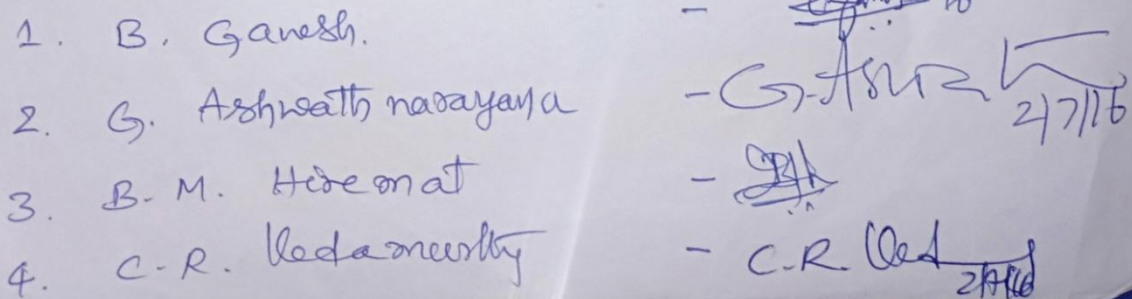 1. B. Ganesh. -
2. G. Ashwath narayana - G. Ashwa 2/7/16
3. B. M. Hiremat -
4. C. R. Vedamurthy - C.R. Ved 2/7/16